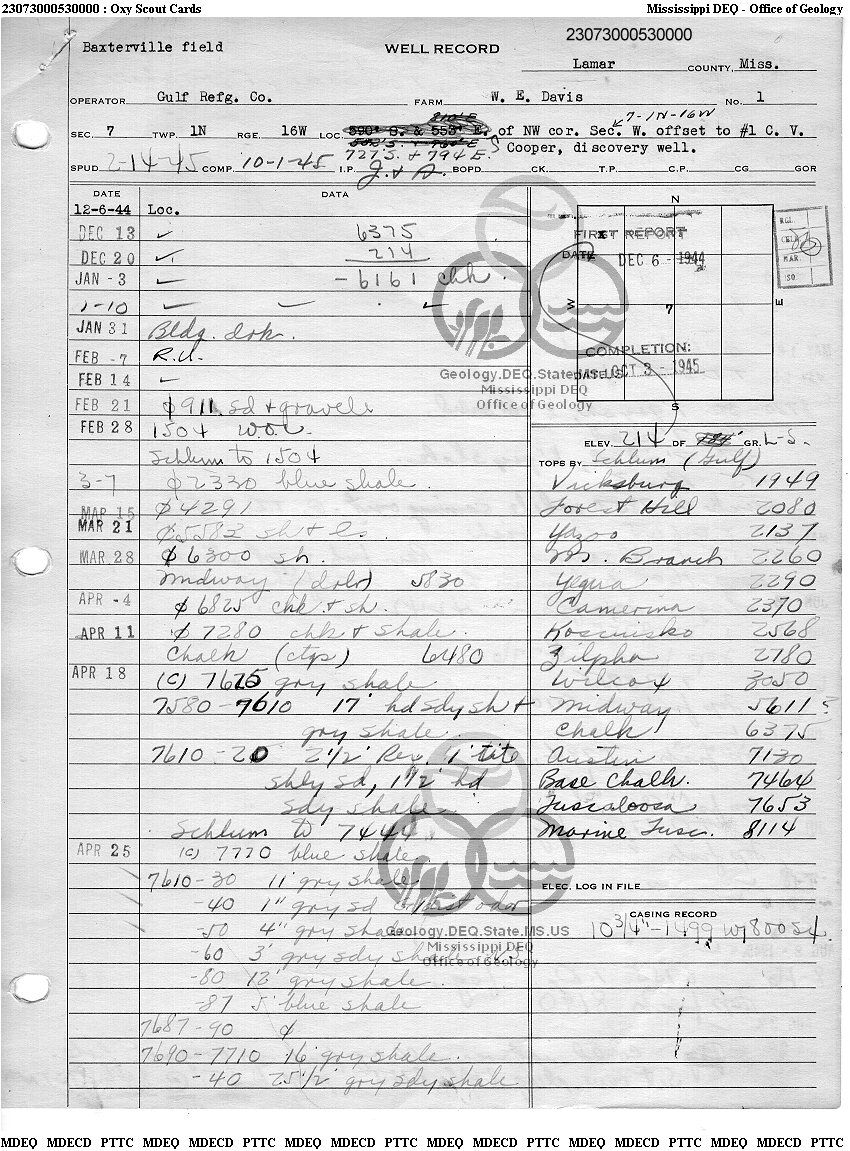 23073000530000 : Oxy Scout Cards Mississippi DEQ - Office of Geology
23073000530000
Baxterville field WELL RECORD
Lamar COUNTY, Miss.
OPERATOR Gulf Refg. Co. FARM W. E. Davis No. 1
7-1N-16W
SEC. 7 TWP. 1N RGE. 16W LOC. 590' S. & 553' E. of NW cor. Sec. W. offset to #1 C. V.
727' S. & 794' E. Cooper, discovery well.
SPUD 2-14-45 COMP. 10-1-45 I.P. J. & A. BOPD CK. T.P. C.P. CG GOR
DATE DATA
12-6-44 Loc.
DEC 13 ✓ 6375
DEC 20 ✓ 214
JAN -3 ✓ -6161 chk.
1-10 ✓ ✓ ✓
JAN 31 Bldg. drk.
FEB -7 R.U.
FEB 14 ✓
FEB 21 ϕ 911 sd & gravel
FEB 28 1504 W.O.C.
Schlum to 1504
3-7 ϕ 2330 blue shale.
MAR 15 ϕ 4291
MAR 21 ϕ 5582 sh & ls.
MAR 28 ϕ 6300 sh.
Midway (drlr) 5830
APR -4 ϕ 6825 chk & sh.
APR 11 ϕ 7280 chk & shale.
Chalk (ctgs) 6480
APR 18 (C) 7625 gry shale
7580-7610 17' hd sdy sh &
gry shale.
7610-20 2 1/2' Rec. 1' tite
shly sd, 1 1/2' hd
sdy shale
Schlum to 7444
APR 25 (C) 7770 blue shale
7610-30 11' gry shale
-40 1" gry sd odor
-50 4" gry shale
-60 3' gry sdy shale
-80 12' gry shale.
-87 5' blue shale
7687-90 ϕ
7690-7710 16' gry shale.
-40 25 1/2' gry sdy shale
N
FIRST REPORT
DATE DEC 6 - 1944
W 7 E
COMPLETION:
DATE OCT 3 - 1945
S
RGL.
CHLK
MAR.
SO.
ELEV. 214 DF GR. L-S.
TOPS BY Schlum (Gulf)
Vicksburg 1949
Forest Hill 2080
Yazoo 2137
M. Branch 2260
Yegua 2290
Camerina 2370
Kosciusko 2568
Zilpha 2780
Wilcox 3050
Midway 5611?
Chalk 6375
Austin 7130
Base Chalk. 7464
Tuscaloosa 7653
Marine Tusc. 8114
ELEC. LOG IN FILE
CASING RECORD
10 3/4"-1499 w/800 sx.
Geology.DEQ.State.MS.US
Mississippi DEQ
Office of Geology
Geology.DEQ.State.MS.US
Mississippi DEQ
Office of Geology
MDEQ MDECD PTTC MDEQ MDECD PTTC MDEQ MDECD PTTC MDEQ MDECD PTTC MDEQ MDECD PTTC MDEQ MDECD PTTC